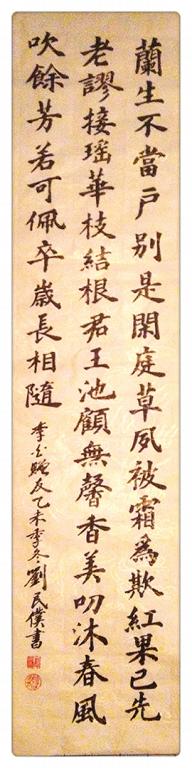 蘭生不當户别是閑庭草夙被霜為欺紅果已先
老謬接瑶華枝結根君王池顧無馨香美叨沐春風
吹餘芳若可佩卒歲長相隨
李白贈友乙未季冬劉民僕書